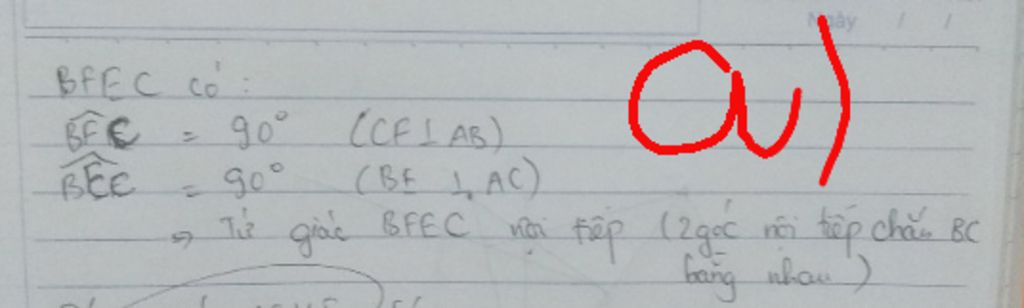 Ngày / /
a)
BFEC có :
BFC = 90° (CF ⊥ AB)
BEC = 90° (BE ⊥ AC)
=> Tứ giác BFEC nội tiếp (2 góc nội tiếp chắn BC
bằng nhau)